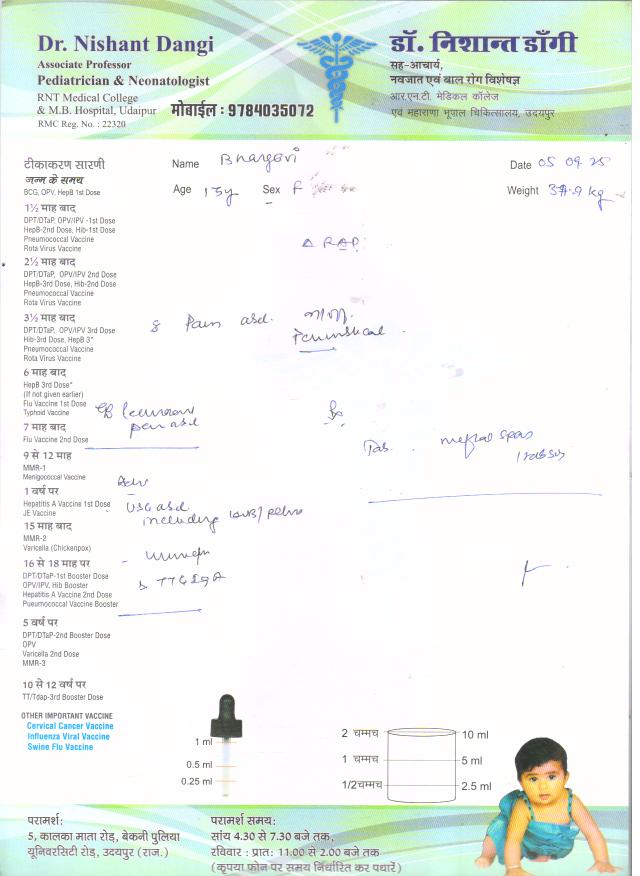 Dr. Nishant Dangi
Associate Professor
Pediatrician & Neonatologist
RNT Medical College
& M.B. Hospital, Udaipur
RMC Reg. No. : 22320
मोबाईल : 9784035072
डॉ. निशान्त डाँगी
सह-आचार्य,
नवजात एवं बाल रोग विशेषज्ञ
आर.एन.टी. मेडिकल कॉलेज
एवं महाराणा भूपाल चिकित्सालय, उदयपुर
Name Bhargavi
Date 05 09 25
Age 13y Sex F
Weight 37.9 kg
टीकाकरण सारणी
जन्म के समय
BCG, OPV, HepB 1st Dose
1½ माह बाद
DPT/DTaP, OPV/IPV -1st Dose
HepB-2nd Dose, Hib-1st Dose
Pneumococcal Vaccine
Rota Virus Vaccine
2½ माह बाद
DPT/DTaP, OPV/IPV 2nd Dose
HepB-3rd Dose, Hib-2nd Dose
Pneumococcal Vaccine
Rota Virus Vaccine
3½ माह बाद
DPT/DTaP, OPV/IPV 3rd Dose
Hib-3rd Dose, HepB 3*
Pneumococcal Vaccine
Rota Virus Vaccine
6 माह बाद
HepB 3rd Dose*
(If not given earlier)
Flu Vaccine 1st Dose
Typhoid Vaccine
7 माह बाद
Flu Vaccine 2nd Dose
9 से 12 माह
MMR-1
Menigococcal Vaccine
1 वर्ष पर
Hepatitis A Vaccine 1st Dose
JE Vaccine
15 माह बाद
MMR-2
Varicella (Chickenpox)
16 से 18 माह पर
DPT/DTaP-1st Booster Dose
OPV/IPV, Hib Booster
Hepatitis A Vaccine 2nd Dose
Pueumococcal Vaccine Booster
5 वर्ष पर
DPT/DTaP-2nd Booster Dose
OPV
Varicella 2nd Dose
MMR-3
10 से 12 वर्ष पर
TT/Tdap-3rd Booster Dose
OTHER IMPORTANT VACCINE
Cervical Cancer Vaccine
Influenza Viral Vaccine
Swine Flu Vaccine
△ RAP
Pain abd.
Periumbilical
Rx
Tab. meftal spas
Adv
USG abd
including KUB/pelvis
TTG IgA
1 ml
0.5 ml
0.25 ml
2 चम्मच 10 ml
1 चम्मच 5 ml
1/2चम्मच 2.5 ml
परामर्श:
5, कालका माता रोड़, बेकनी पुलिया
यूनिवरसिटी रोड़, उदयपुर (राज.)
परामर्श समय:
सांय 4.30 से 7.30 बजे तक,
रविवार : प्रात: 11.00 से 2.00 बजे तक
(कृपया फोन पर समय निर्धारित कर पधारें)